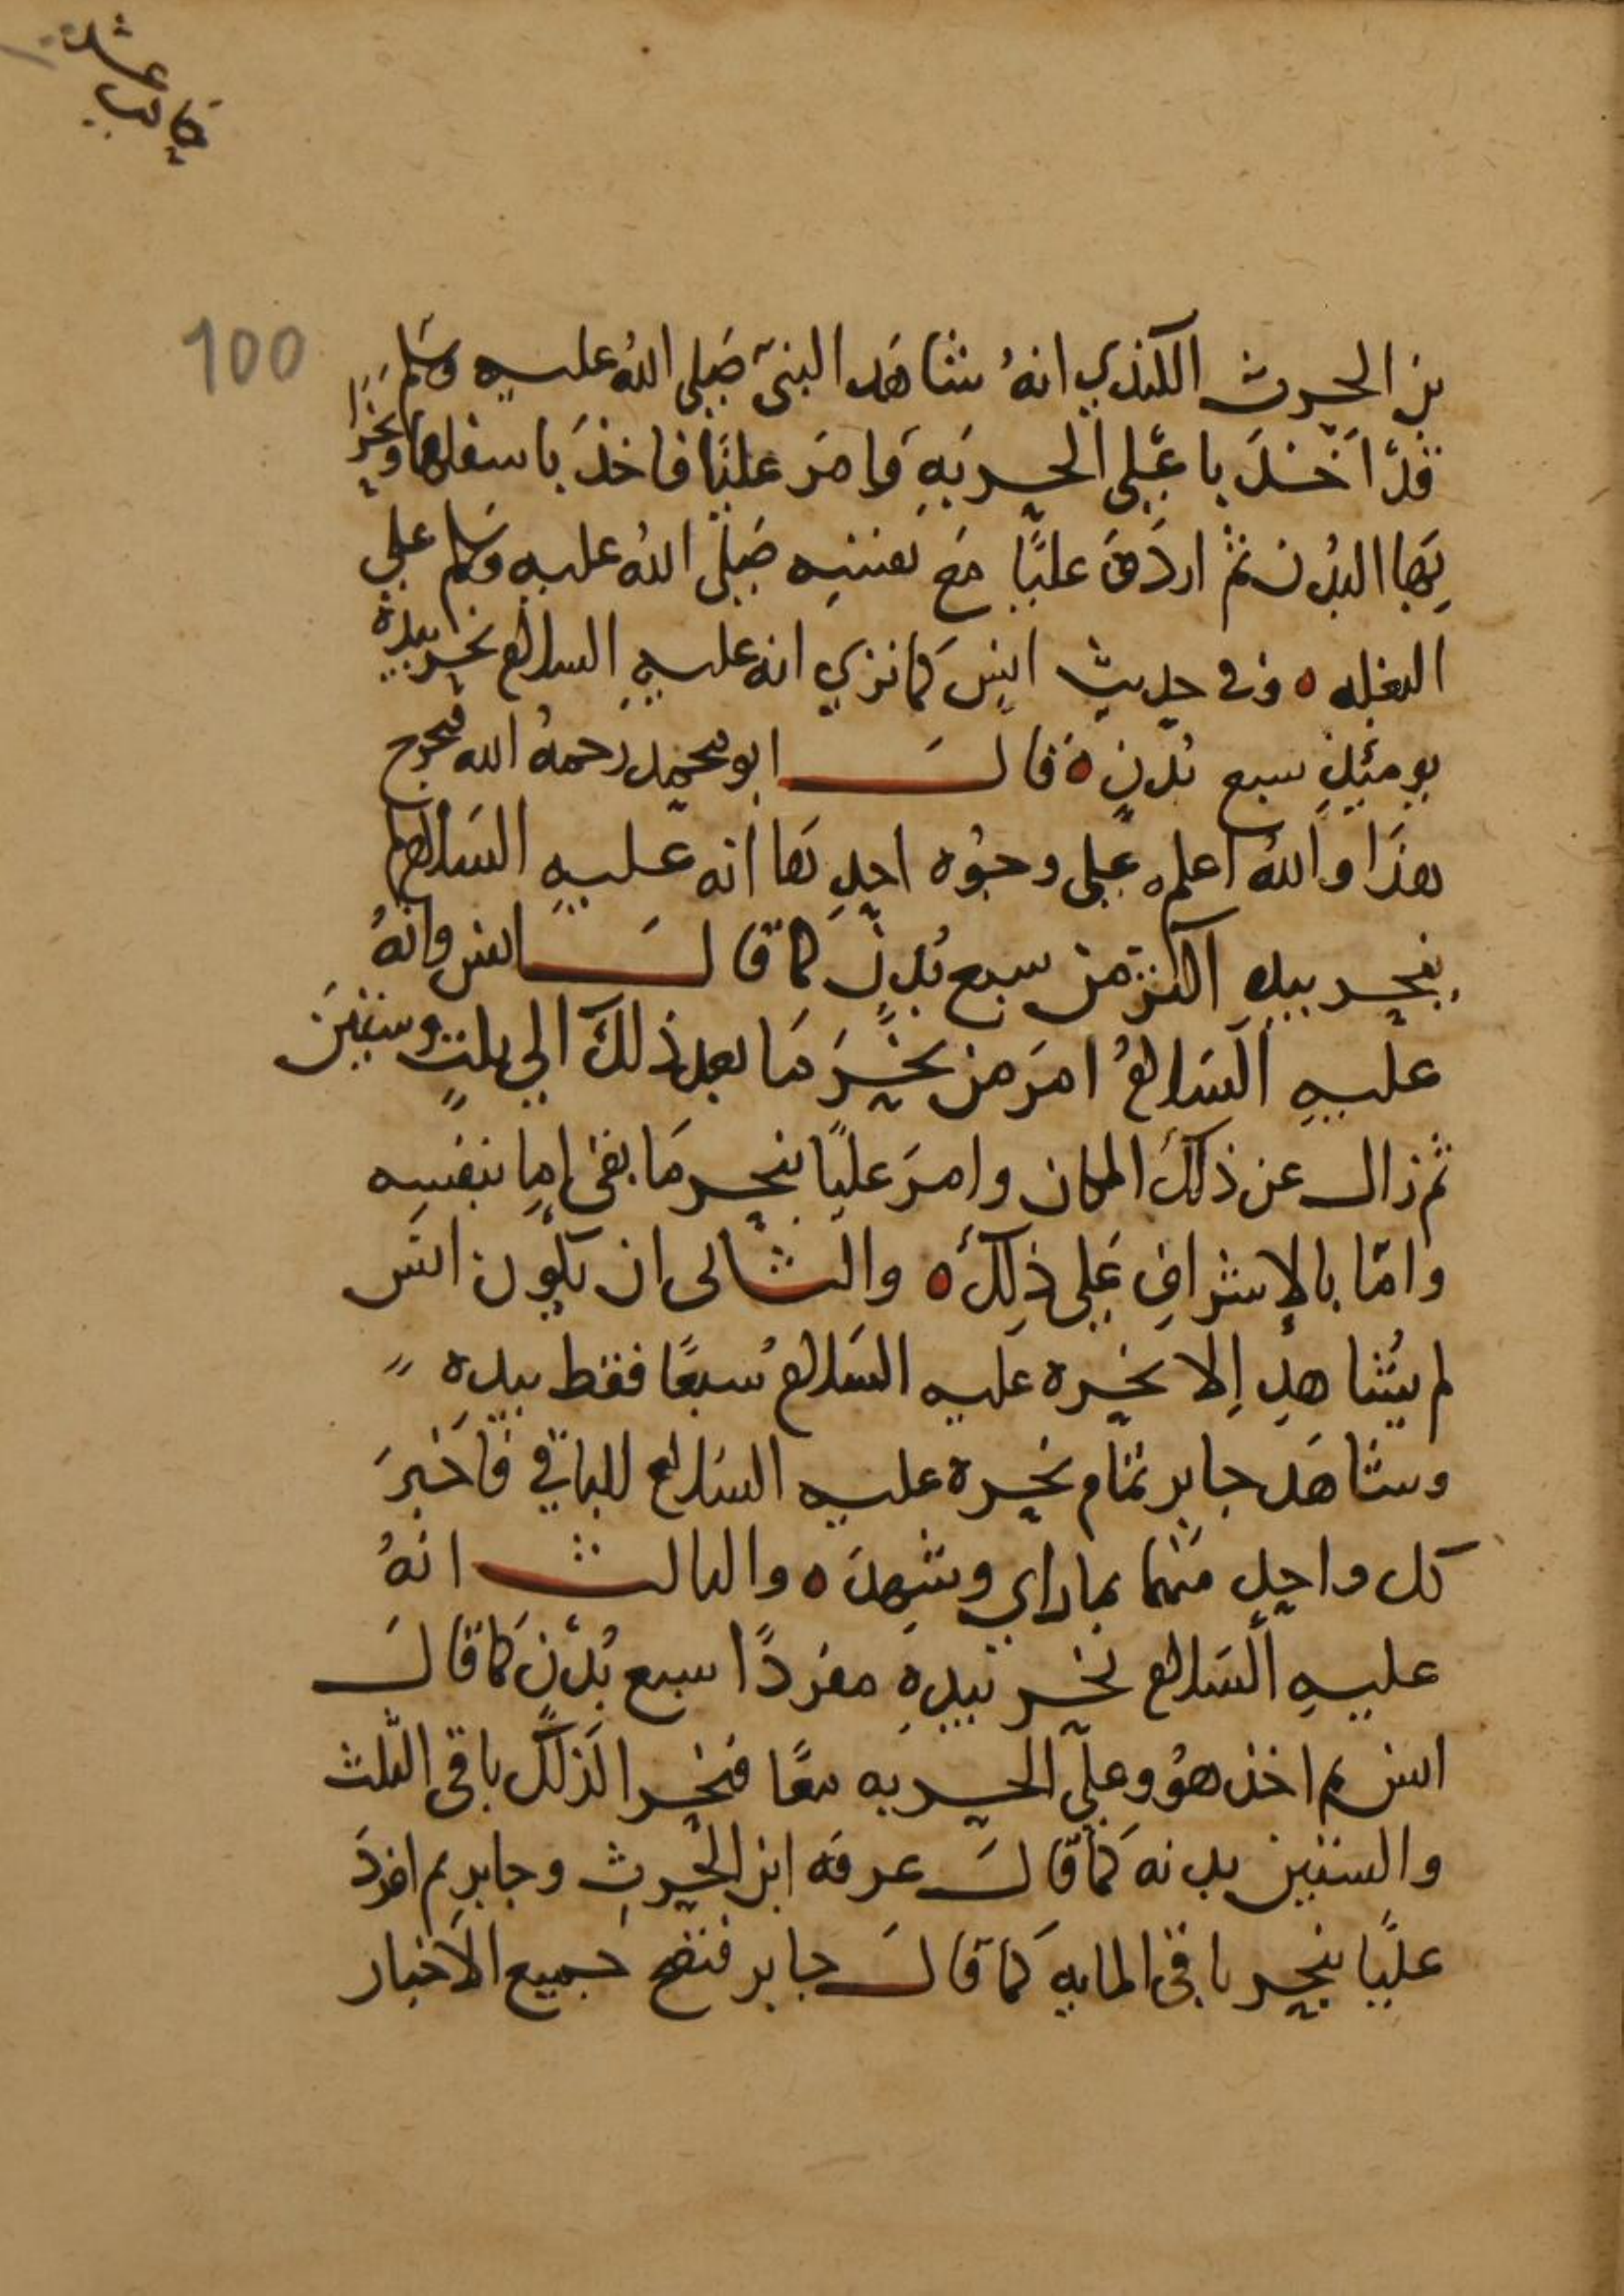 عشرة
100
بن الحرث الكندي انهُ شاهَد النبيّ صَلى اللهُ عليه وسَلم
قدْ اخَذَ باعَلى الحربَةِ وَامَر عليًا فاخذَ باسفلها ونحَرَا
بهَا البُدن ثم اردَفَ عليًا مَع نفسِه صَلى اللهُ عليه وسَلم علي
البغله ٥ وفي حديث انسٍ كما نري انه عليهِ السلام نحر بيده
يومئذٍ سبع بُدنٍ ٥ قالَ ابو محمد رحمهُ الله فيخرج
هذَا واللهُ اعلم علَى وجوُه احدِهَا انه عليهِ السَلام لم
ينحر بيدهِ اكثر من سبع بُدنٍ كما قالَ انس وانهُ
عليهِ السَلامُ امَر من ينحَرَ مَا بعد ذلكَ الي ثلثٍ وستينَ
ثم زال عن ذلكَ المكان وامرَ عليًا بنحر مَا بقى اما بنفسِه
وامّا بالاِشرافِ عَلى ذلِكَ ٥ والثاني ان يكوُن انَس
لم يُشاهدِ اِلا نحره عَليه السَلامُ سبعًا فقط بيدِه
وشاهَد جابر تمام نحره عليه السَلام للباقي فاَخبرَ
كل واحدٍ منهما بما راي وشهِدَ ٥ والثالث انهُ
عليهِ السَلام نحر بيدِهِ مفردًا سبع بُدْنٍ كمَا قالَ
انس ثم اخذ هوُ وعليّ الحربه معًا فنحرا كَذلكَ باقي الثلث
والستين بدنه كمَا قالَ عرفه ابن الحرثِ وجابر ثم افردَ
عليًا بنحر باقي المايهِ كمَا قالَ جابر فتصح جميع الاَخبار